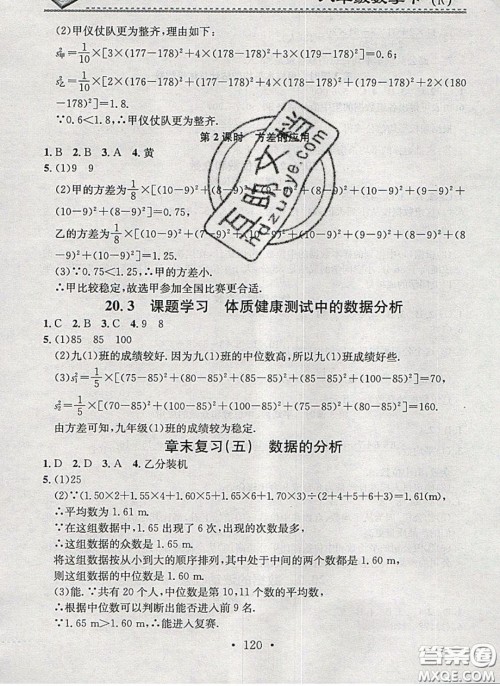 八年级数学下(R)
(2)甲仪仗队更为整齐.理由如下:
s²甲=1/10×[3×(177-178)²+4×(178-178)²+3×(179-178)²]=0.6;
s²乙=1/10×[2×(176-178)²+(177-178)²+4×(178-178)²+(179-178)²+2×(180
-178)²]=1.8.
∵0.6<1.8,∴甲仪仗队更为整齐.
第2课时 方差的应用
1.B 2.B 3.A 4.黄
5.(1)9 9
(2)甲的方差为1/8×[(10-9)²+(8-9)²
(10-9)²+(8-9)²]=0.75,
乙的方差为1/8×[(10-9)²+(7-9)²+(10-9)²+(10-9)²+(9-9)²+(8
-9)²+(8-9)²+(10-9)²]=1.25.
(3)∵0.75<1.25,∴甲的方差小.
∴甲比较稳定,故选甲参加全国比赛更合适.
20.3 课题学习 体质健康测试中的数据分析
1.C 2.B 3.C 4.9 8
5.(1)85 85 100
(2)九(1)班的成绩较好.因为九(1)班的中位数高,所以九(1)班成绩好些.
(3)s²₁=1/5×[(75-85)²+(80-85)²+(85-85)²+(85-85)²+(100-85)²]=70,
s²₂=1/5×[(70-85)²+(100-85)²+(100-85)²+(75-85)²+(80-85)²]=160.
由方差可知,九年级(1)班的成绩较为稳定.
章末复习(五) 数据的分析
1.D 2.D 3.A 4.乙分装机
5.(1)25
(2)∵(1.50×2+1.55×4+1.60×5+1.65×6+1.70×3)÷(2+4+5+6+3)=1.61(m),
∴平均数为1.61 m.
∵在这组数据中,1.65出现了6次,出现的次数最多,
∴这组数据的众数是1.65 m.
将这组数据按从小到大的顺序排列,其中处于中间的两个数都是1.60 m,
∴这组数据的中位数是1.60 m.
(3)能.∵共有20个人,中位数是第10,11个数的平均数,
∴根据中位数可以判断出能否进入前9名.
∵1.65 m>1.60 m,∴能进入复赛.
·120·
自助文库
hdzuoye.com
答案圈
MXQE.COM